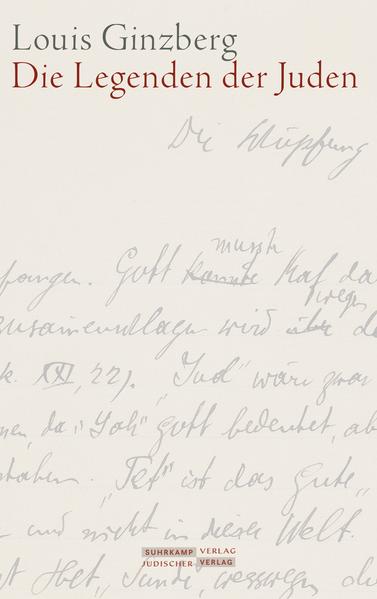 Louis Ginzberg
Die Legenden der Juden
Die Schöpfung
musste
fangen. Gott konnte Kaf da
wegen
zusammenschlagen wird über d
k. XXI, 22). „Jud" wäre zwar
nen, da „Jah" Gott bedeutet, ab
staben. „Tet" ist das Gute „
und nicht in dieser Welt.
SUHRKAMP VERLAG
JÜDISCHER VERLAG
st Het, „Sünde, weswegen d